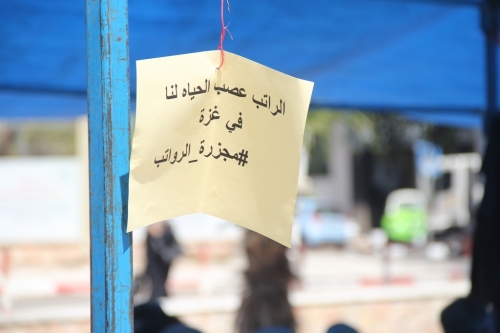 الراتب عصب الحياه لنا
في غزة
#مجزرة_الرواتب